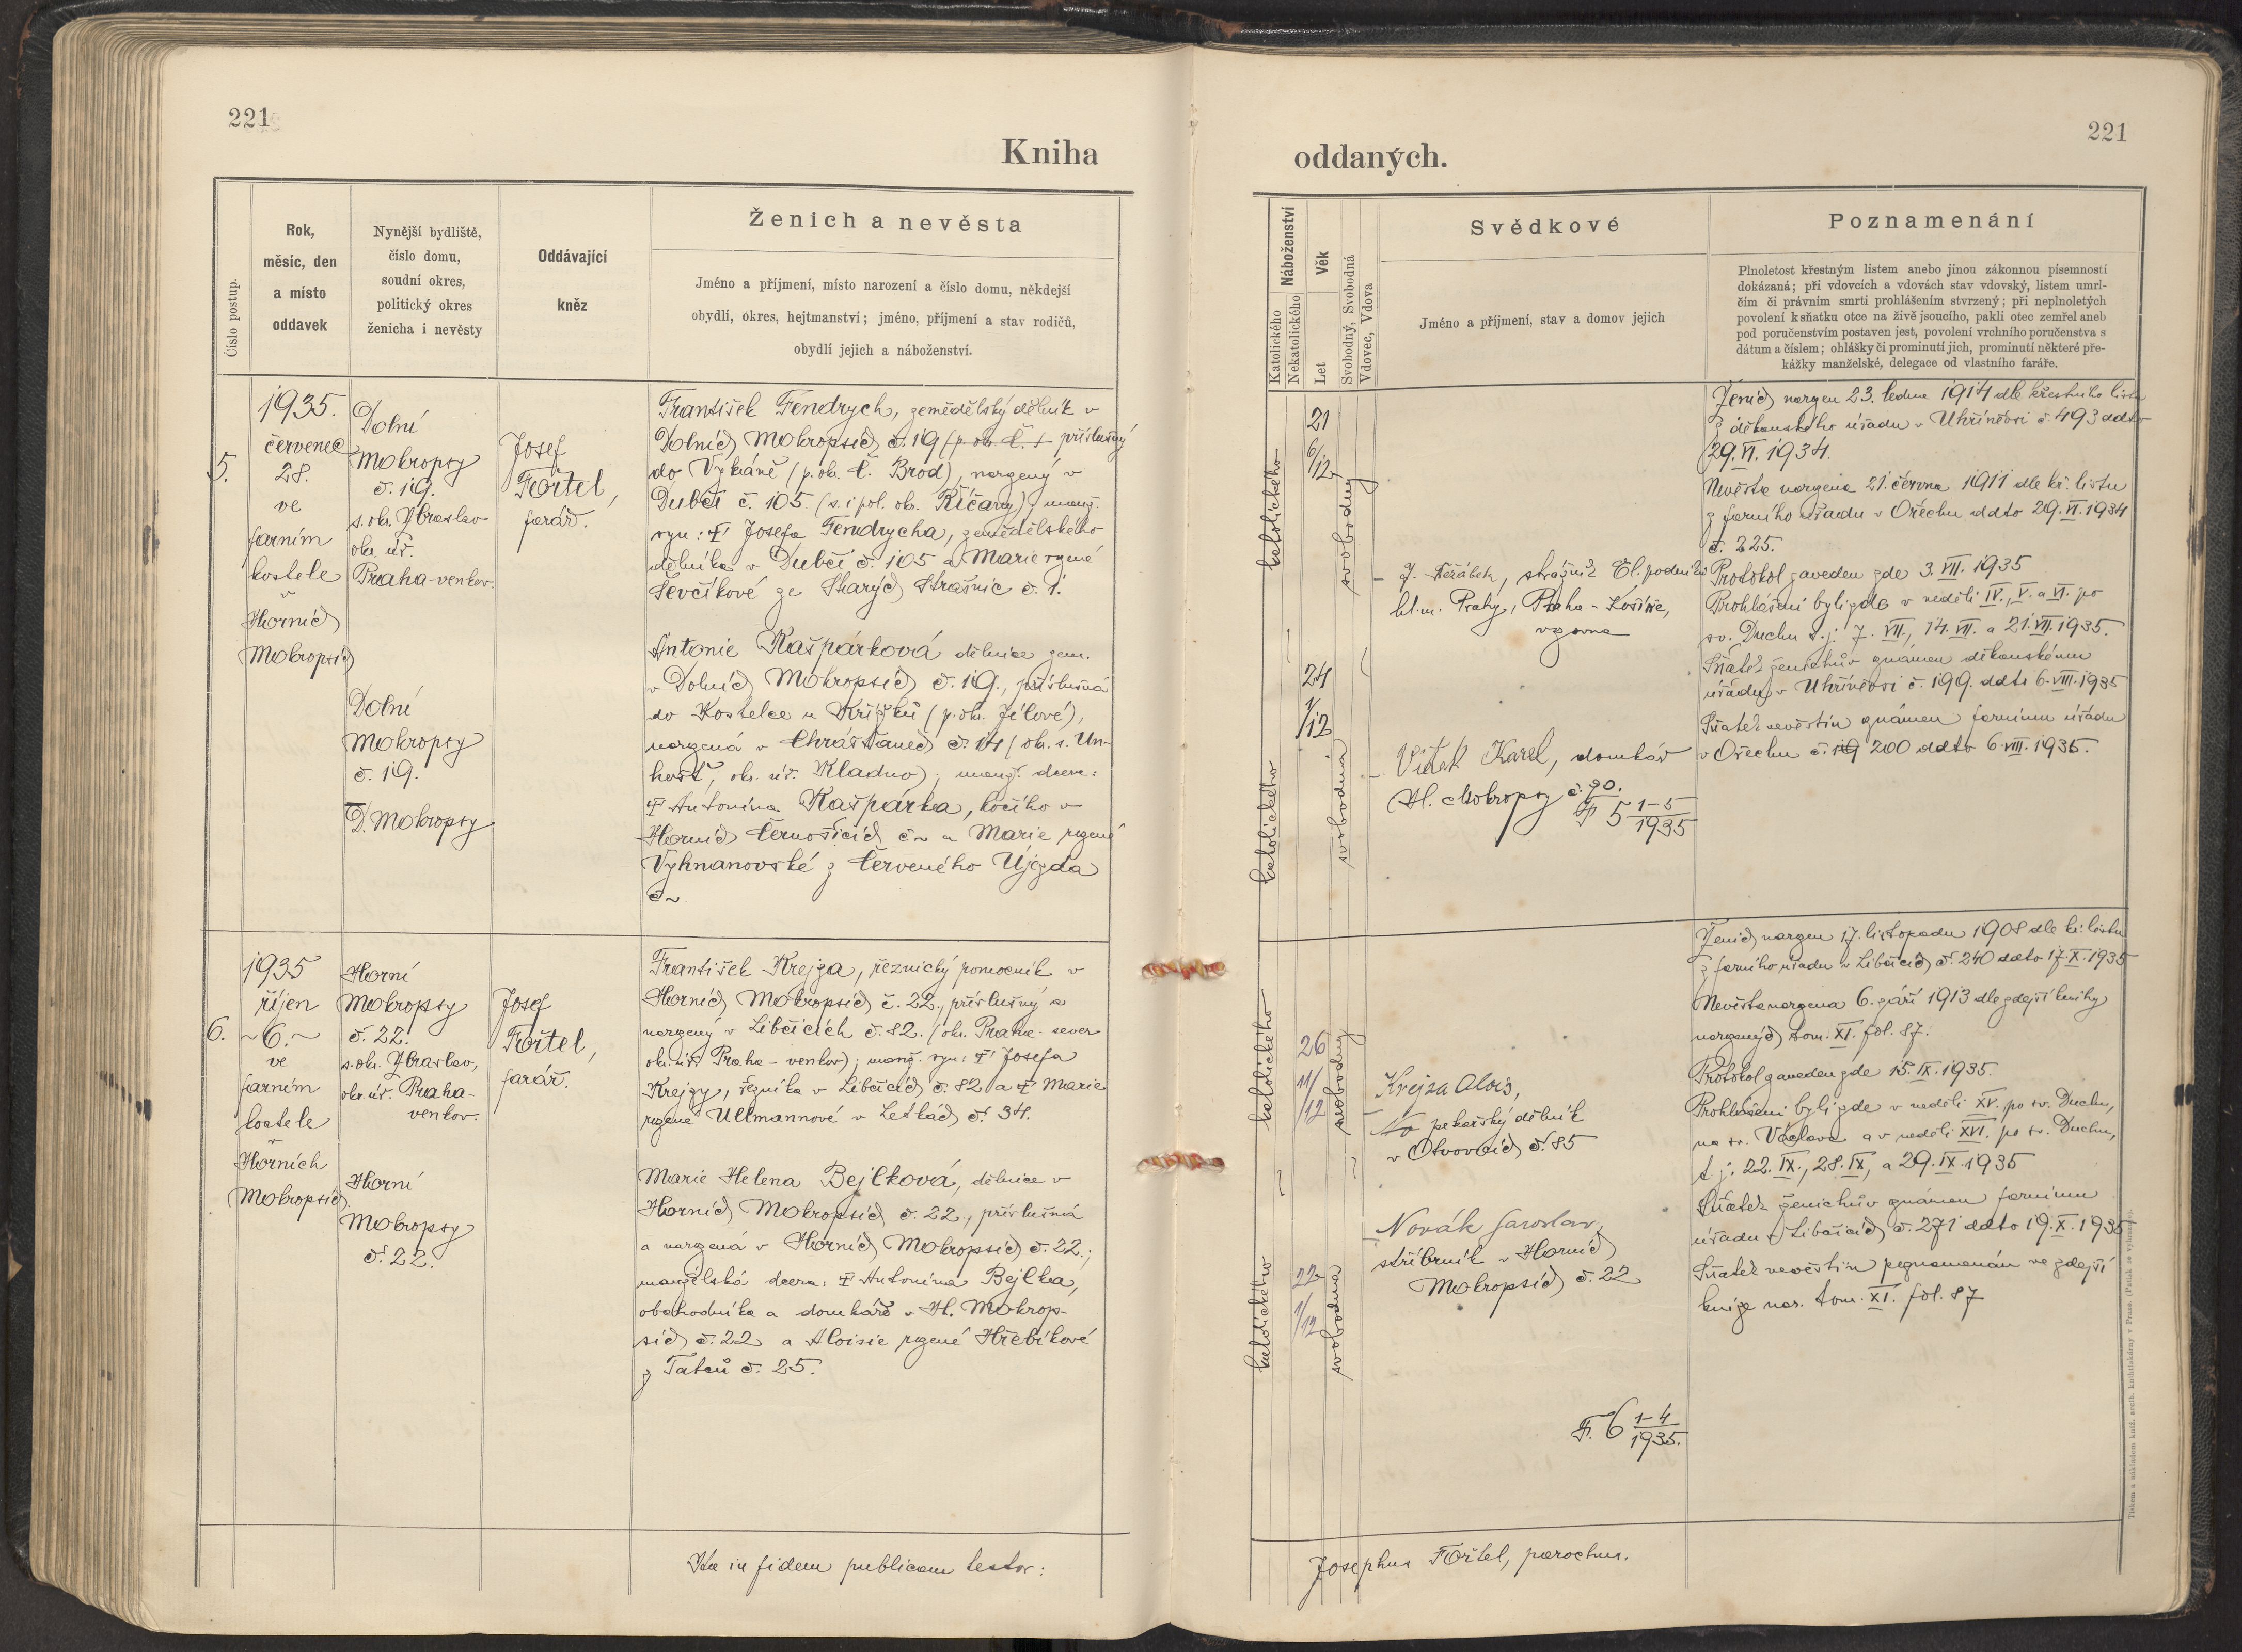 221
Kniha
Číslo postup.
Rok,
měsíc, den
a místo
oddavek
Nynější bydliště,
číslo domu,
soudní okres,
politický okres
ženicha i nevěsty
Oddávající
kněz
Ženich a nevěsta
Jméno a příjmení, místo narození a číslo domu, někdejší
obydlí, okres, hejtmanství; jméno, příjmení a stav rodičů,
obydlí jejich a náboženství.
5.
1935.
červenec
28.
ve
farním
kostele
v
Horních
Mokropsích
Dolní
Mokropsy
č. 19.
s. okr. Zbraslav
okr. úř.
Praha-venkov.
Josef
Fořtel,
farář.
František Fendrych, zemědělský dělník v
Dolních Mokropsích č. 19 (p. okr. Č. + příslušný
do Vykáně (p. okr. Č. Brod), narozený v
Dubči č. 105 (s. i pol. okr. Říčany); manž.
syn: † Josefa Fendrycha, zemědělského
dělníka v Dubči č. 105 a Marie rozené
Ševčíkové ze Starých Strašnic č. 1.
Dolní
Mokropsy
č. 19.
D. Mokropsy
Antonie Kašpárková dělnice zem.
v Dolních Mokropsích č. 19., příslušná
do Kostelce u Křížků (p. okr. Jílové),
narozená v Chrášťanech č. 14 (ok. s. Un-
hošť, ok. úř. Kladno); manž. dcera:
† Antonína Kašpárka, kočího v
Horních Černošicích č ~ a Marie rozené
Vyhnanovské z Červeného Újezda
č ~
6.
1935
říjen
~6.~
ve
farním
kostele
v
Horních
Mokropsích.
Horní
Mokropsy
č. 22.
s. okr. Zbraslav,
okr. úř. Praha-
venkov.
Josef
Fořtel,
farář.
František Krejza, řeznický pomocník v
Horních Mokropsích č. 22., příslušný a
narozený v Libčicích č. 82. (okr. Praha-sever
okr. úřad Praha-venkov); manž. syn: † Josefa
Krejzy, řezníka v Libčicích č. 82 a † Marie
rozené Ullmannové v Letkách č. 34.
Horní
Mokropsy
č. 22.
Marie Helena Bejlková, dělnice v
Horních Mokropsích č. 22., příslušná
a narozená v Horních Mokropsích č. 22.;
manželská dcera: † Antonína Bejlka,
obchodníka a domkáře v H. Mokrop-
sích č. 22 a Aloisie rozené Hřebíkové
z Tatců č. 25.
Ita in fidem publicam testor:
221
oddaných.
Náboženství
Katolického
Nekatolického
Věk
Let
Svobodný, Svobodná
Vdovec, Vdova
Svědkové
Jméno a příjmení, stav a domov jejich
Poznamenání
Plnoletost křestným listem anebo jinou zákonnou písemností
dokázaná; při vdovcích a vdovách stav vdovský, listem úmrl-
čím či právním smrti prohlášením stvrzený; při neplnoletých
povolení k sňatku otce na živě jsoucího, pakli otec zemřel aneb
pod poručenstvím postaven jest, povolení vrchního poručenstva s
dátum a číslem; ohlášky či prominutí jich, prominutí některé pře-
kážky manželské, delegace od vlastního faráře.
katolického
21
6/12
svobodný
J. Jeřábek, strážník El. podniků
hl. m. Prahy, Praha-Košíře,
vozovna
katolického
24
1/12
svobodná
Vítek Karel, domkář
H. Mokropsy č. 90.
F 5 1-5
1935
Ženich narozen 23. ledna 1914 dle křestního listu
z děkanského úřadu v Uhříněvsi č. 493 ddto
29. VI. 1934.
Nevěsta narozena 21. června 1911 dle kř. listu
z farního úřadu v Ořechu ddto 29. VI. 1934
č. 225.
Protokol zaveden zde 3. VII. 1935
Prohlášeni byli zde v neděli IV., V. a VI. po
sv. Duchu t. j. 7. VII., 14. VII. a 21. VII. 1935.
Sňatek ženichův známen děkanskému
úřadu v Uhříněvsi č. 199. ddto 6. VIII. 1935
Sňatek nevěstin známen farnímu úřadu
v Ořechu č. 19 200 ddto 6. VIII. 1935.
katolického
26
11/12
svobodný
Krejza Alois,
pekařský dělník
v Otvovicích č. 85
katolického
22
1/12
svobodná
Novák Jaroslav,
stříbrník v Horních
Mokropsích č. 22
F. 6 1-4
1935.
Ženich narozen 17. listopadu 1908 dle kř. listu
z farního úřadu v Libčicích č. 240 ddto 17. X. 1935
Nevěsta narozena 6. září 1913 dle zdejší knihy
narozených tom. XI. fol. 87.
Protokol zaveden zde 15. IX. 1935.
Prohlášeni byli zde v neděli XV. po sv. Duchu,
na sv. Václava a v neděli XVI. po sv. Duchu,
t. j. 22. IX., 28. IX., a 29. IX. 1935
Sňatek ženichův známen farnímu
úřadu v Libčicích č. 271 ddto 19. X. 1935
Sňatek nevěstin poznamenán ve zdejší
knize nar. tom. XI. fol. 87
Josephus Fořtel, parochus.